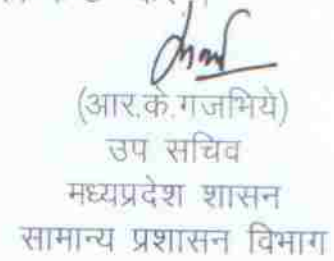 (आर.के.गजभिये)
उप सचिव
मध्यप्रदेश शासन
सामान्य प्रशासन विभाग